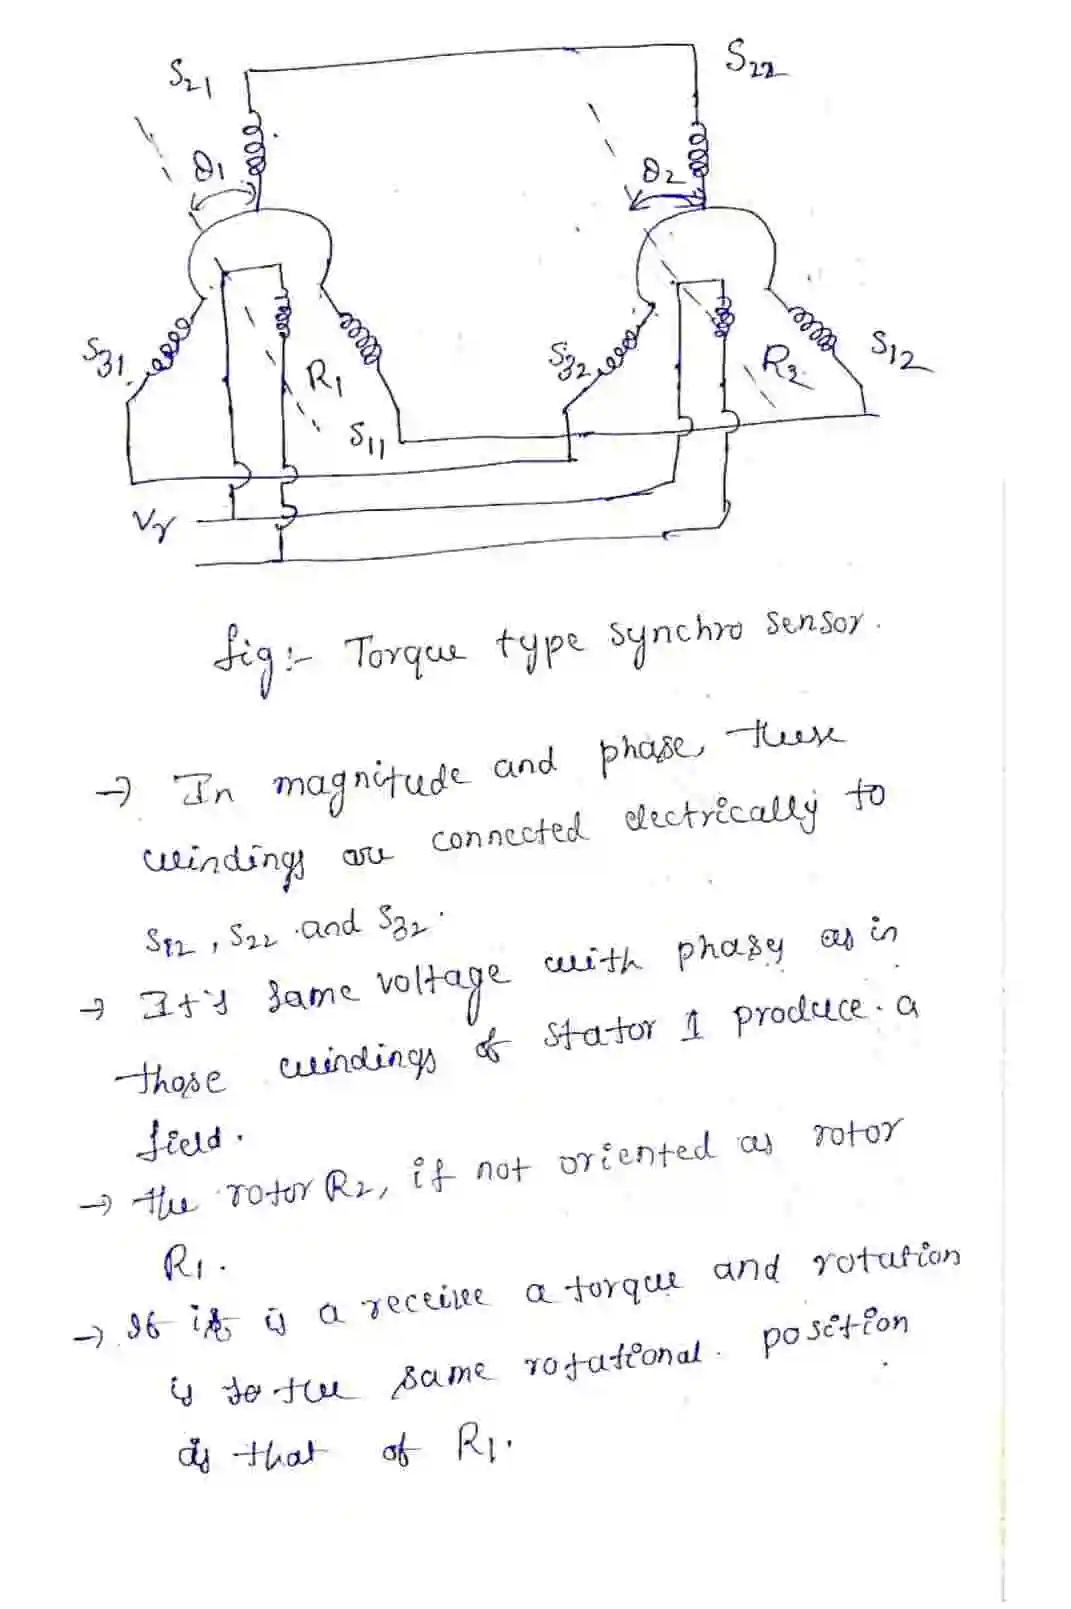 S21
S22
θ1
θ2
S31
R1
S11
S32
R2
S12
Vr
fig:- Torque type synchro sensor.
→ In magnitude and phase, these
windings are connected electrically to
S12, S22 and S32.
→ It's same voltage with phasy as in
those windings of stator 1 produce a
field.
→ the rotor R2, if not oriented as rotor
R1.
→ If it is a receive a torque and rotation
is to the same rotational position
as that of R1.